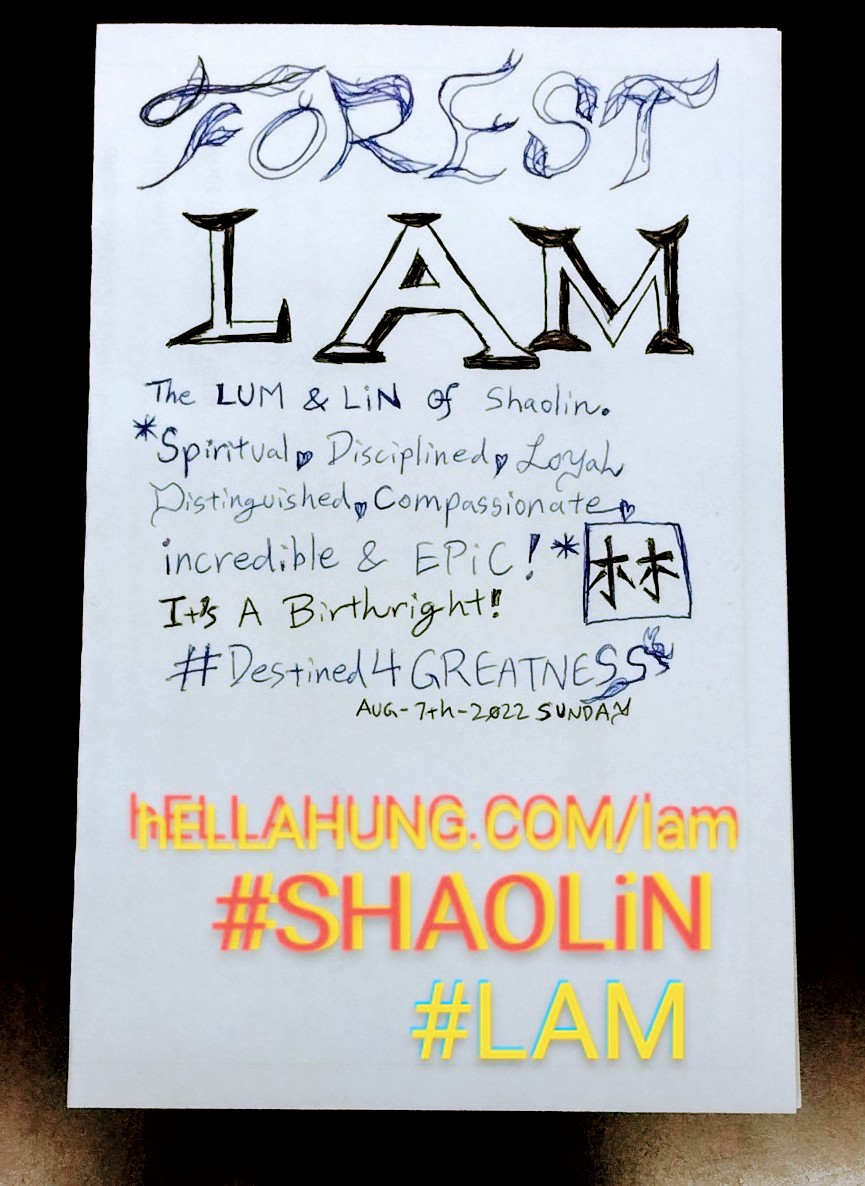 FOREST
LAM
The LUM & LiN Of Shaolin.
*Spiritual, Disciplined, Loyal
Distinguished, Compassionate
incredible & EPiC! *林
It's A Birthright!
#Destined4GREATNESS
AUG-7th-2022 SUNDAY
hELLAHUNG.COM/lam
#SHAOLiN
#LAM